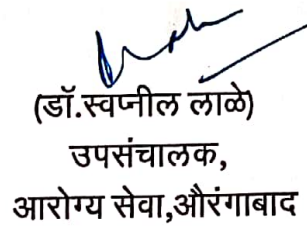 (डॉ.स्वप्नील लाळे)
उपसंचालक,
आरोग्य सेवा,औरंगाबाद